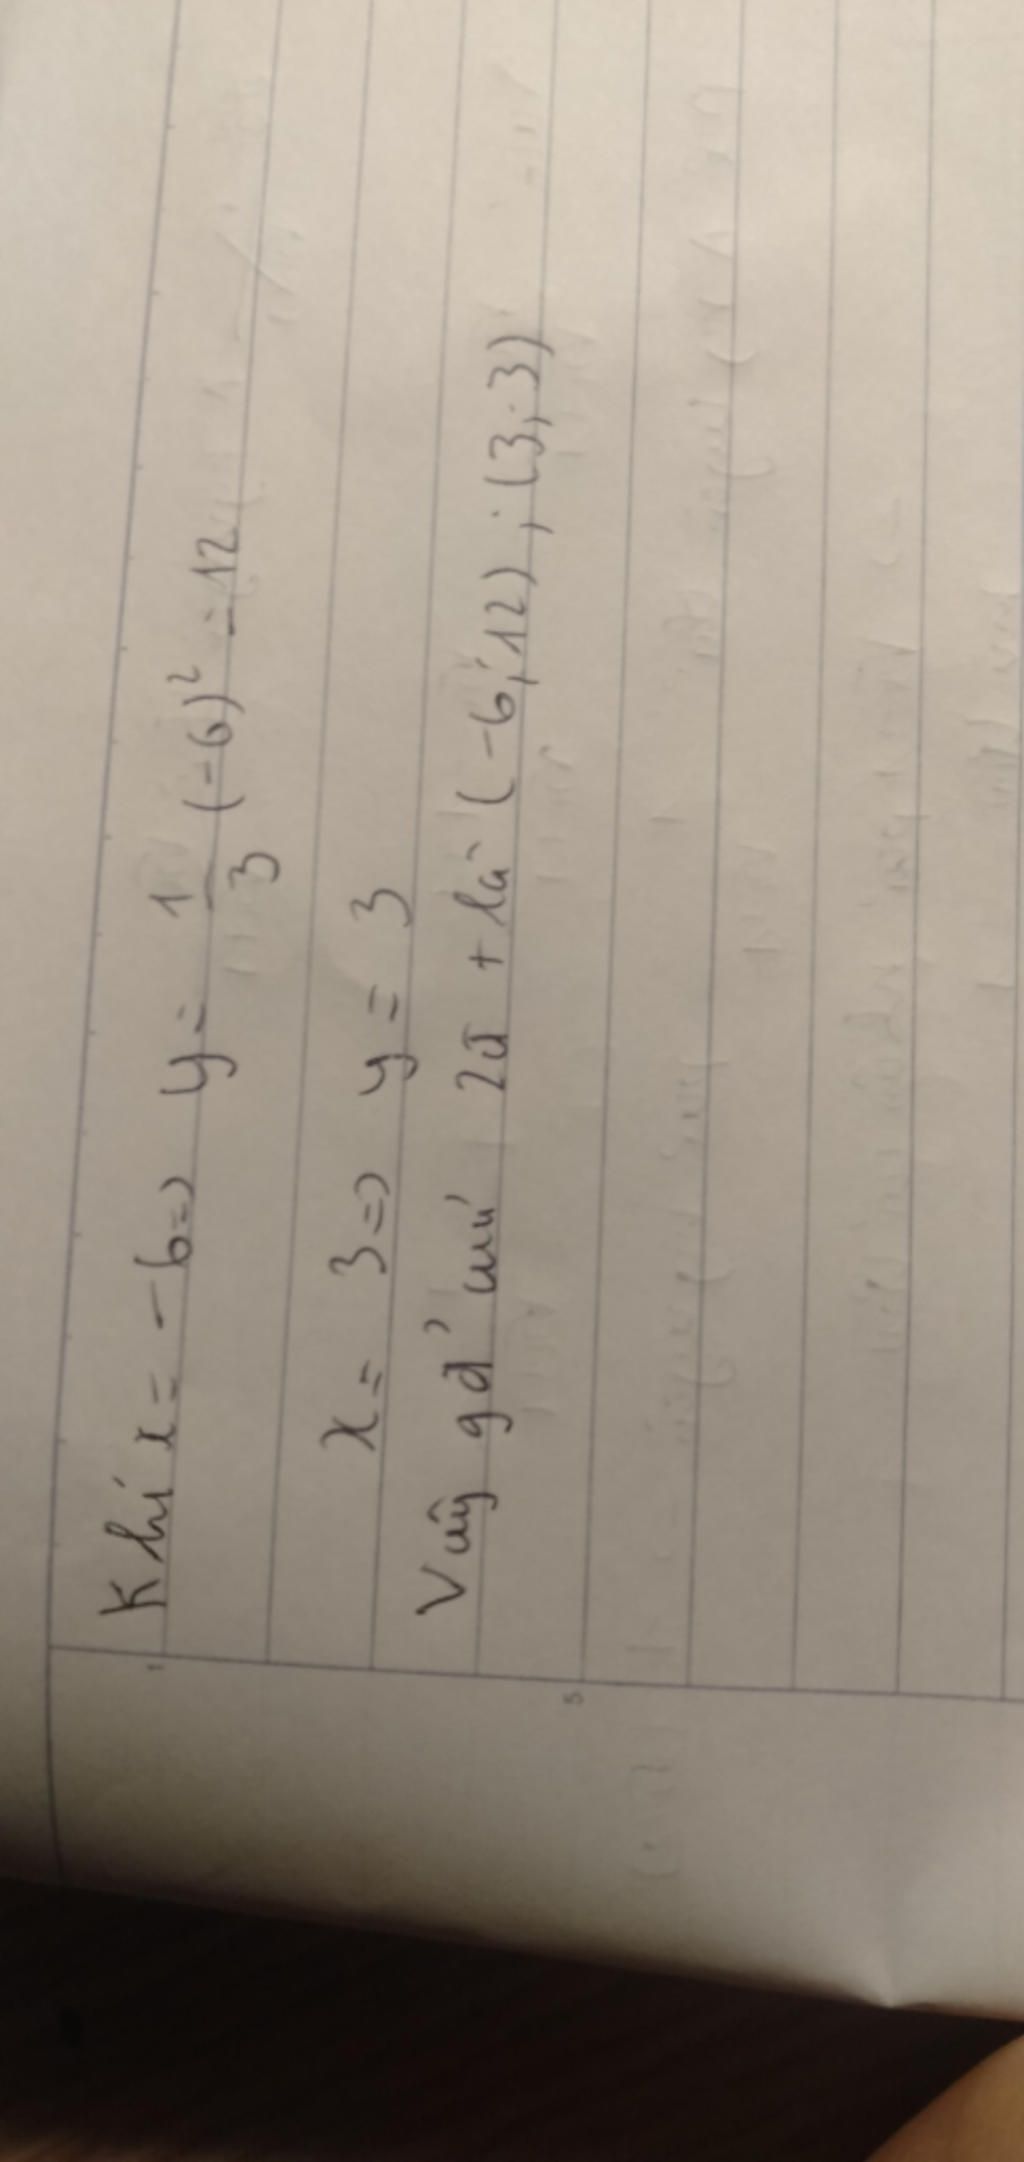 Khi x = -6 => y = 1/3 (-6)² = 12
x = 3 => y = 3
Vậy gđ' 2đ t là (-6; 12); (3; 3)
1
5